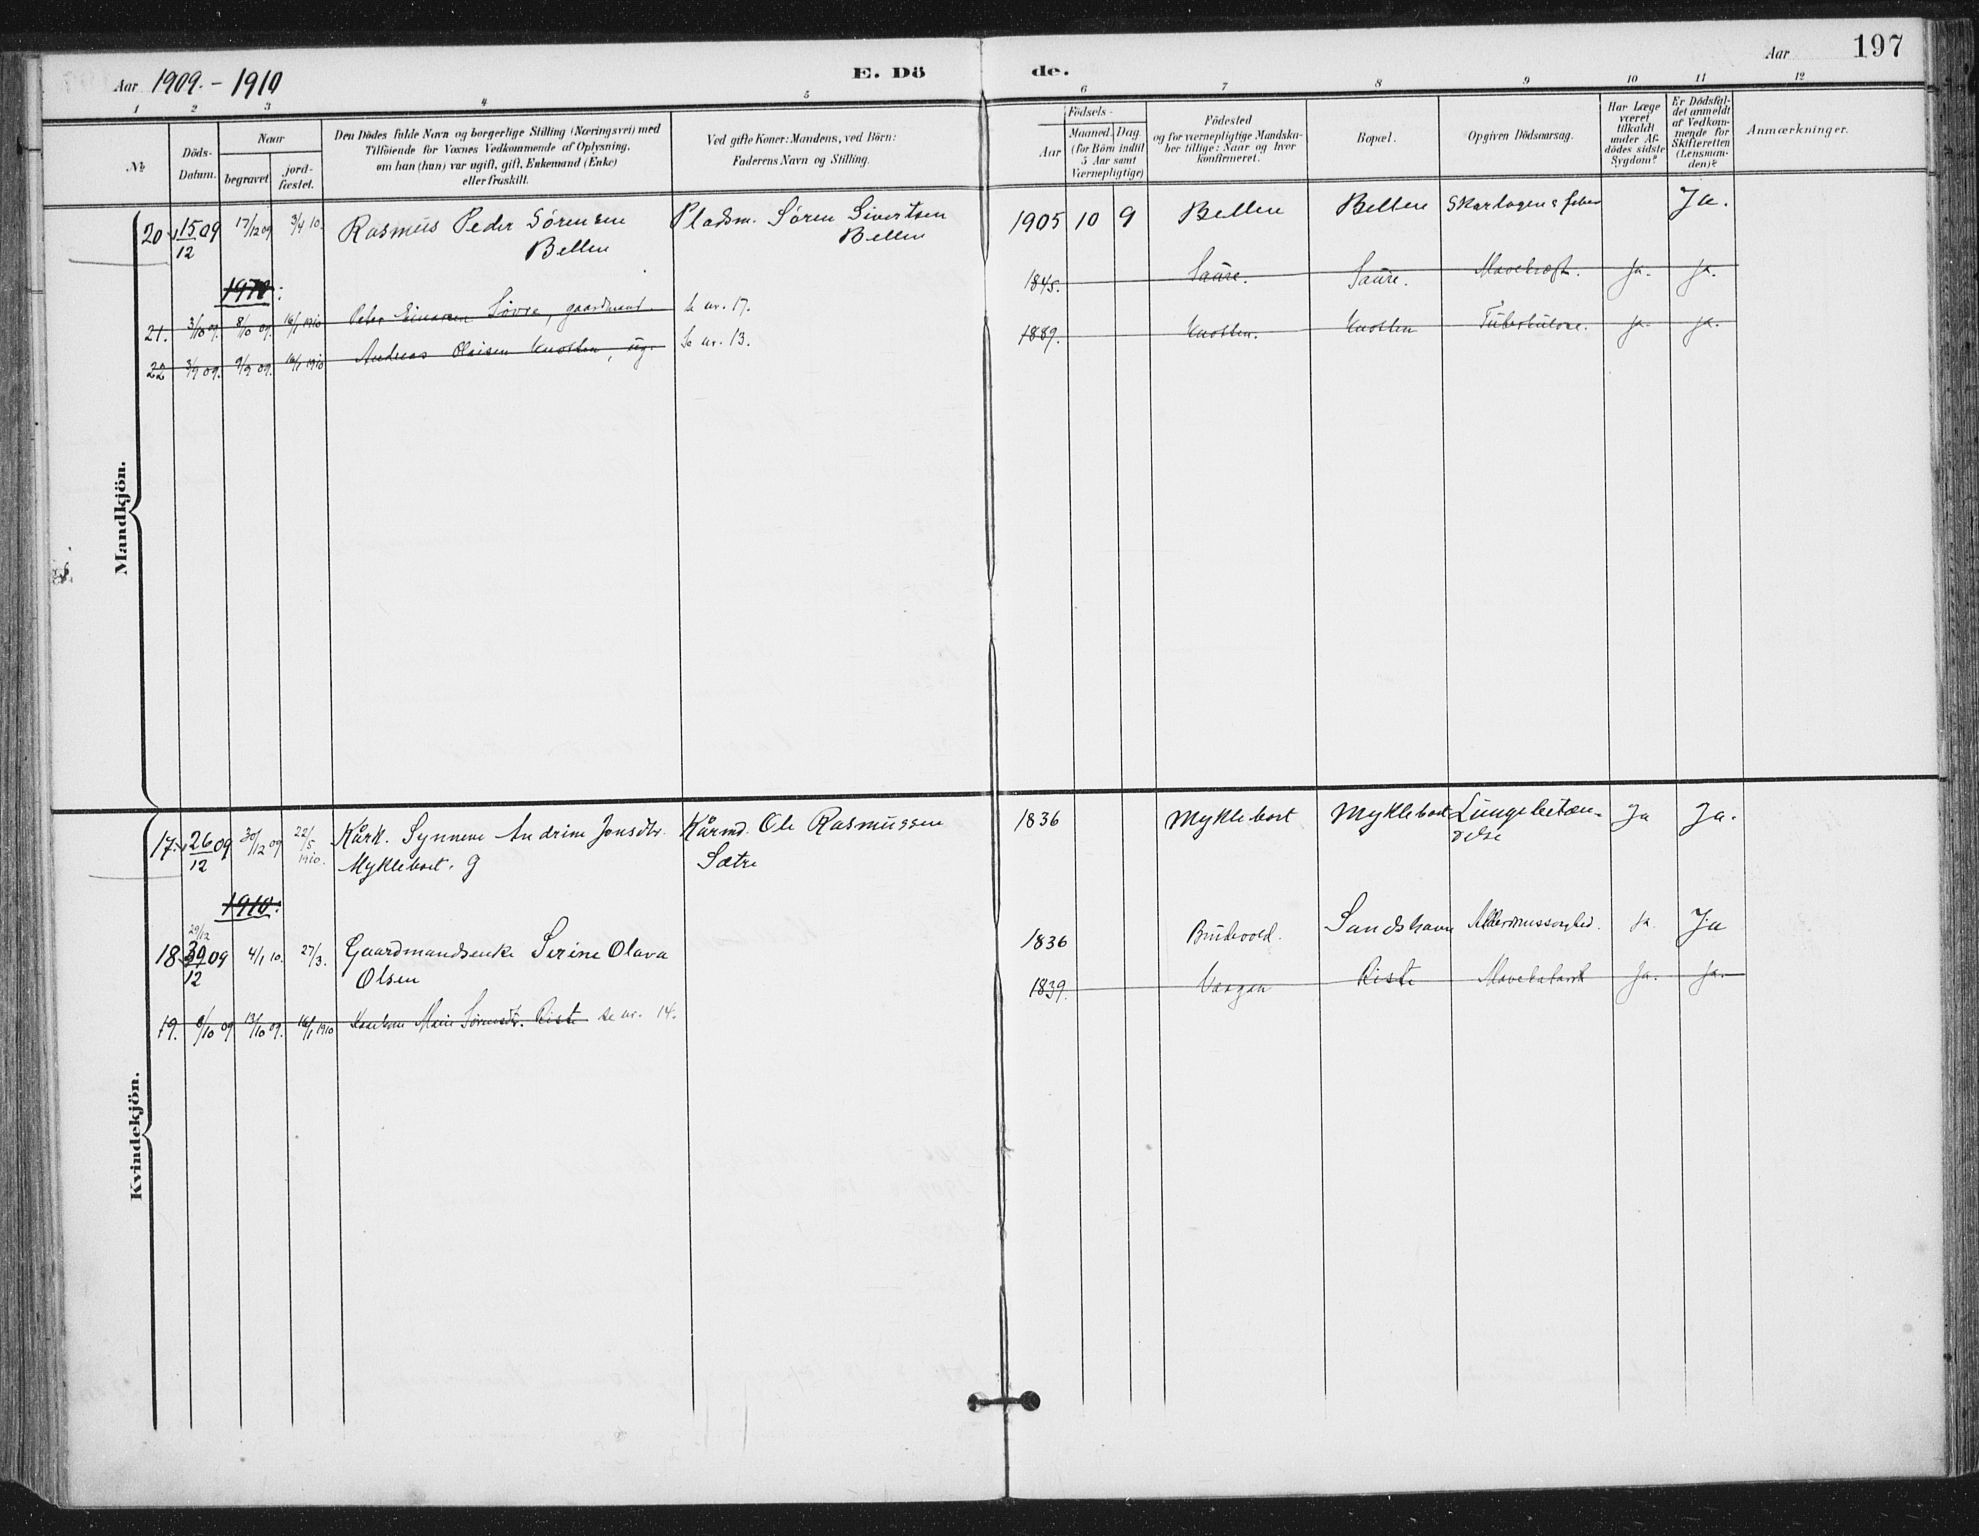 Aar 1909. - 1910
E. Dö
de.
Aar
197
1 2 3 4 5 6 7 8 9 10 11 12
No
Döds-
Datum.
Naar
begravet.
jord-
fæstet.
Den Dödes fulde Navn og borgerlige Stilling (Næringsvei) med
Tilföiende for Voxnes Vedkommende af Oplysning,
om han (hun) var ugift, gift, Enkemand (Enke)
eller fraskilt.
Ved gifte Koner: Mandens, ved Börn:
Faderens Navn og Stilling.
Födsels-
Aar
Maaned. Dag.
(for Börn indtil
5 Aar samt
Værnepligtige)
Födested
og for værnepligtige Mandska-
ber tillige: Naar og hvor
konfirmeret.
Bopæl.
Opgiven Dödsaarsag.
Har Læge
været
tilkaldt
under Af-
dödes sidste
Sygdom?
Er Dödsfal-
det anmeldt
af Vedkom-
mende for
Skifteretten
(Lensman-
den)?
Anmærkninger.
Mandkjön.
20 15/12 09 17/12 09 3/4 10. Rasmus Peder Sörensen Pladsm. Sören Sivertsen 1905 10 9 Bellen Bellen Skarlagensfeber Ja.
Bellen Bellen
1910:
21. 3/10 09. 8/10 09. 16/1 1910 Peter Einarsen Sövre, gaardmand. Se nr. 17. 1845. Saure. Saure. Mavekræft. Ja. Ja.
22 3/9 09. 9/9 09. 16/1 1910 Andreas Olaisen Knotten, ug. Se nr. 13. 1889. Knotten. Knotten Tuberkulose. Ja. Ja.
Kvindekjön.
17. 26/12 09 30/12 09 22/5 1910. Kårk. Synneve Andrine Jonsdtr. Kårmd. Ole Rasmussen 1836 Myklebost Myklebost Lungebetæn- Ja Ja.
Myklebost. g Sætre delse
1910:
29/12
18 30/12 09 4/1 10. 27/3. Gaardmandsenke Serine Olava 1836 Brudevold. Sandshavn Ja. Ja
Olsen
19. 8/10 09 13/10 09. 16/1 1910 Marie Sörensdtr. Riste se nr. 14. 1839. Vaagan Riste Mavekatarrh Ja. Ja.